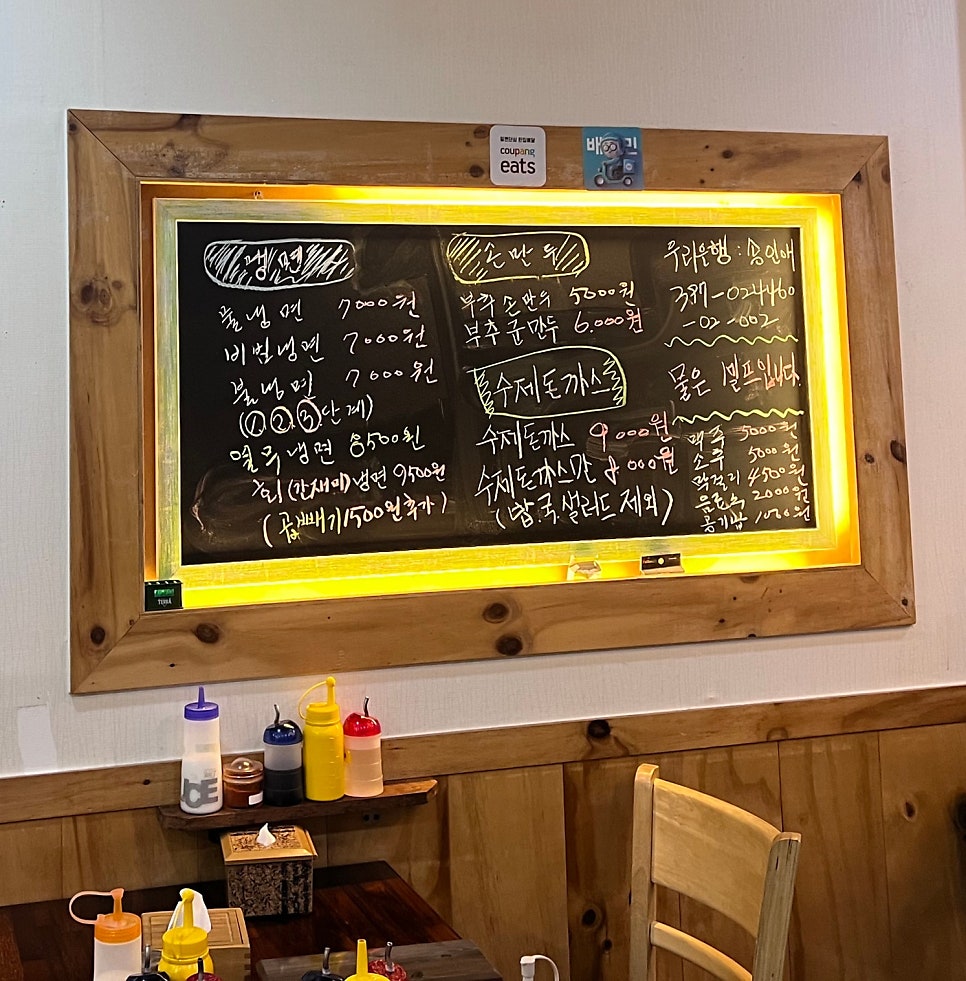 coupang
eats
배민
냉면
물냉면 7000원
비빔냉면 7000원
불냉면 7000원
(①②③단계)
열무냉면 8500원
회(간재미)냉면 9500원
(곱빼기1500원추가)
손만두
부추손만두 5000원
부추군만두 6.000원
수제돈까스
수제돈까스 9000원
수제돈까스만 8000원
(밥.국.샐러드 제외)
우리은행: 송인애
-02-002
물은 셀프입니다.
맥주 5000원
소주 5000원
막걸리 4500원
음료수 2000원
공기밥 1000원
TERRA